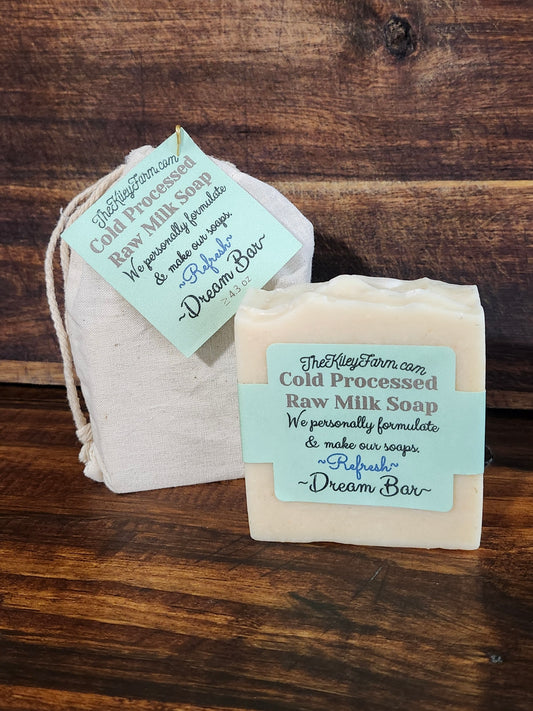 TheKileyFarm.com
Cold Processed
Raw Milk Soap
We personally formulate
& make our soaps.
~Refresh~
~Dream Bar~
≥ 4.3 oz
TheKileyFarm.com
Cold Processed
Raw Milk Soap
We personally formulate
& make our soaps.
~Refresh~
~Dream Bar~